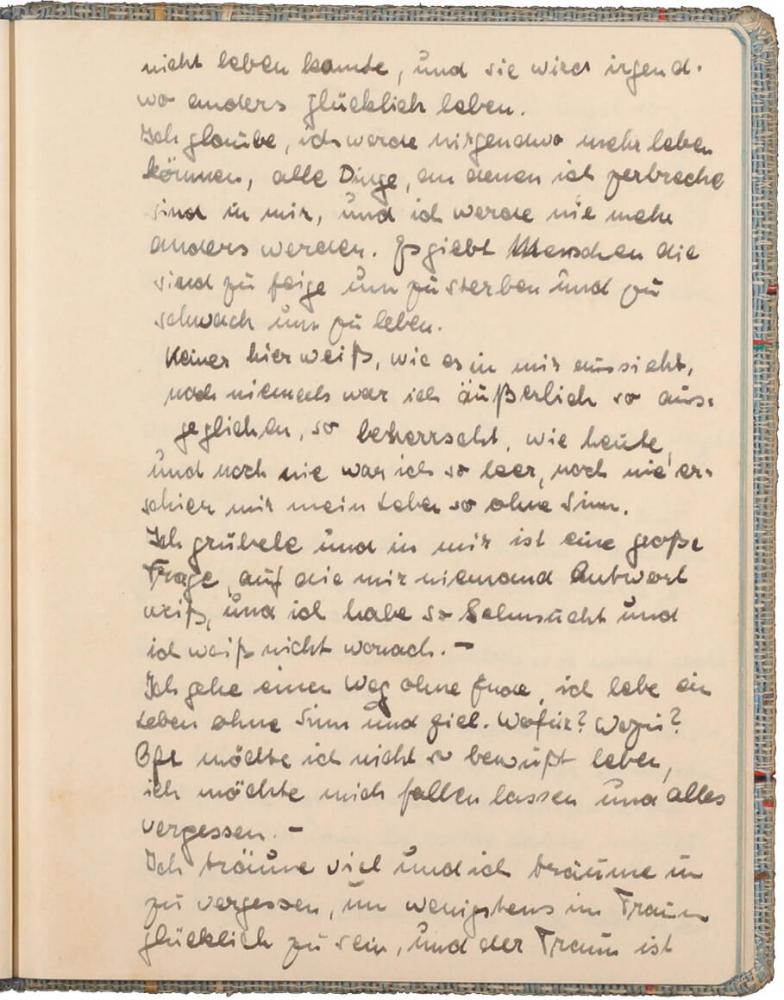 nicht leben konnte, und sie wird irgend-
wo anders glücklich leben.
Ich glaube, ich werde nirgendwo mehr leben
können, alle Dinge, an denen ich zerbreche
sind in mir, und ich werde nie mehr
anders werden. Es giebt Menschen die
sind zu feige um zu sterben und zu
schwach um zu leben.
Keiner hier weiß, wie es in mir aussieht,
noch niemals war ich äußerlich so aus-
geglichen, so beherrscht, wie heute,
und noch nie war ich so leer, noch nie er-
schien mir mein Leben so ohne Sinn.
Ich grübele und in mir ist eine große
Frage, auf die mir niemand Antwort
weiß, und ich habe so Sehnsucht und
ich weiß nicht wonach. –
Ich gehe einen Weg ohne Ende, ich lebe ein
Leben ohne Sinn und Ziel. Wofür? Wozu?
Oft möchte ich nicht so bewußt leben,
ich möchte mich fallen lassen und alles
vergessen. –
Ich träume viel und ich träume um
zu vergessen, um wenigstens im Traum
glücklich zu sein, und der Traum ist